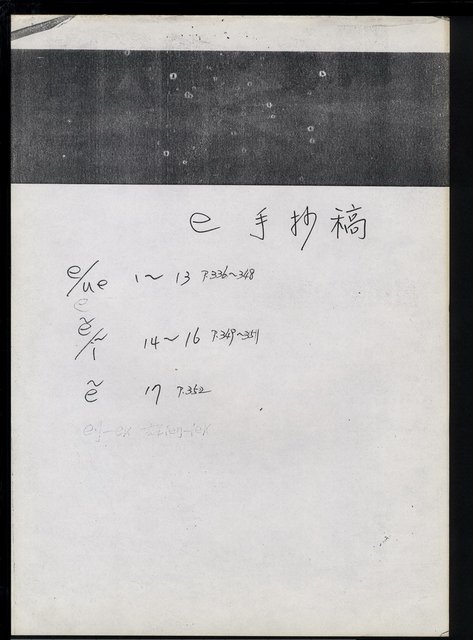 e 手抄稿
e/ue 1～13 P.336～348
e
ẽ/ĩ 14～16 P.349～351
ẽ 17 P.352